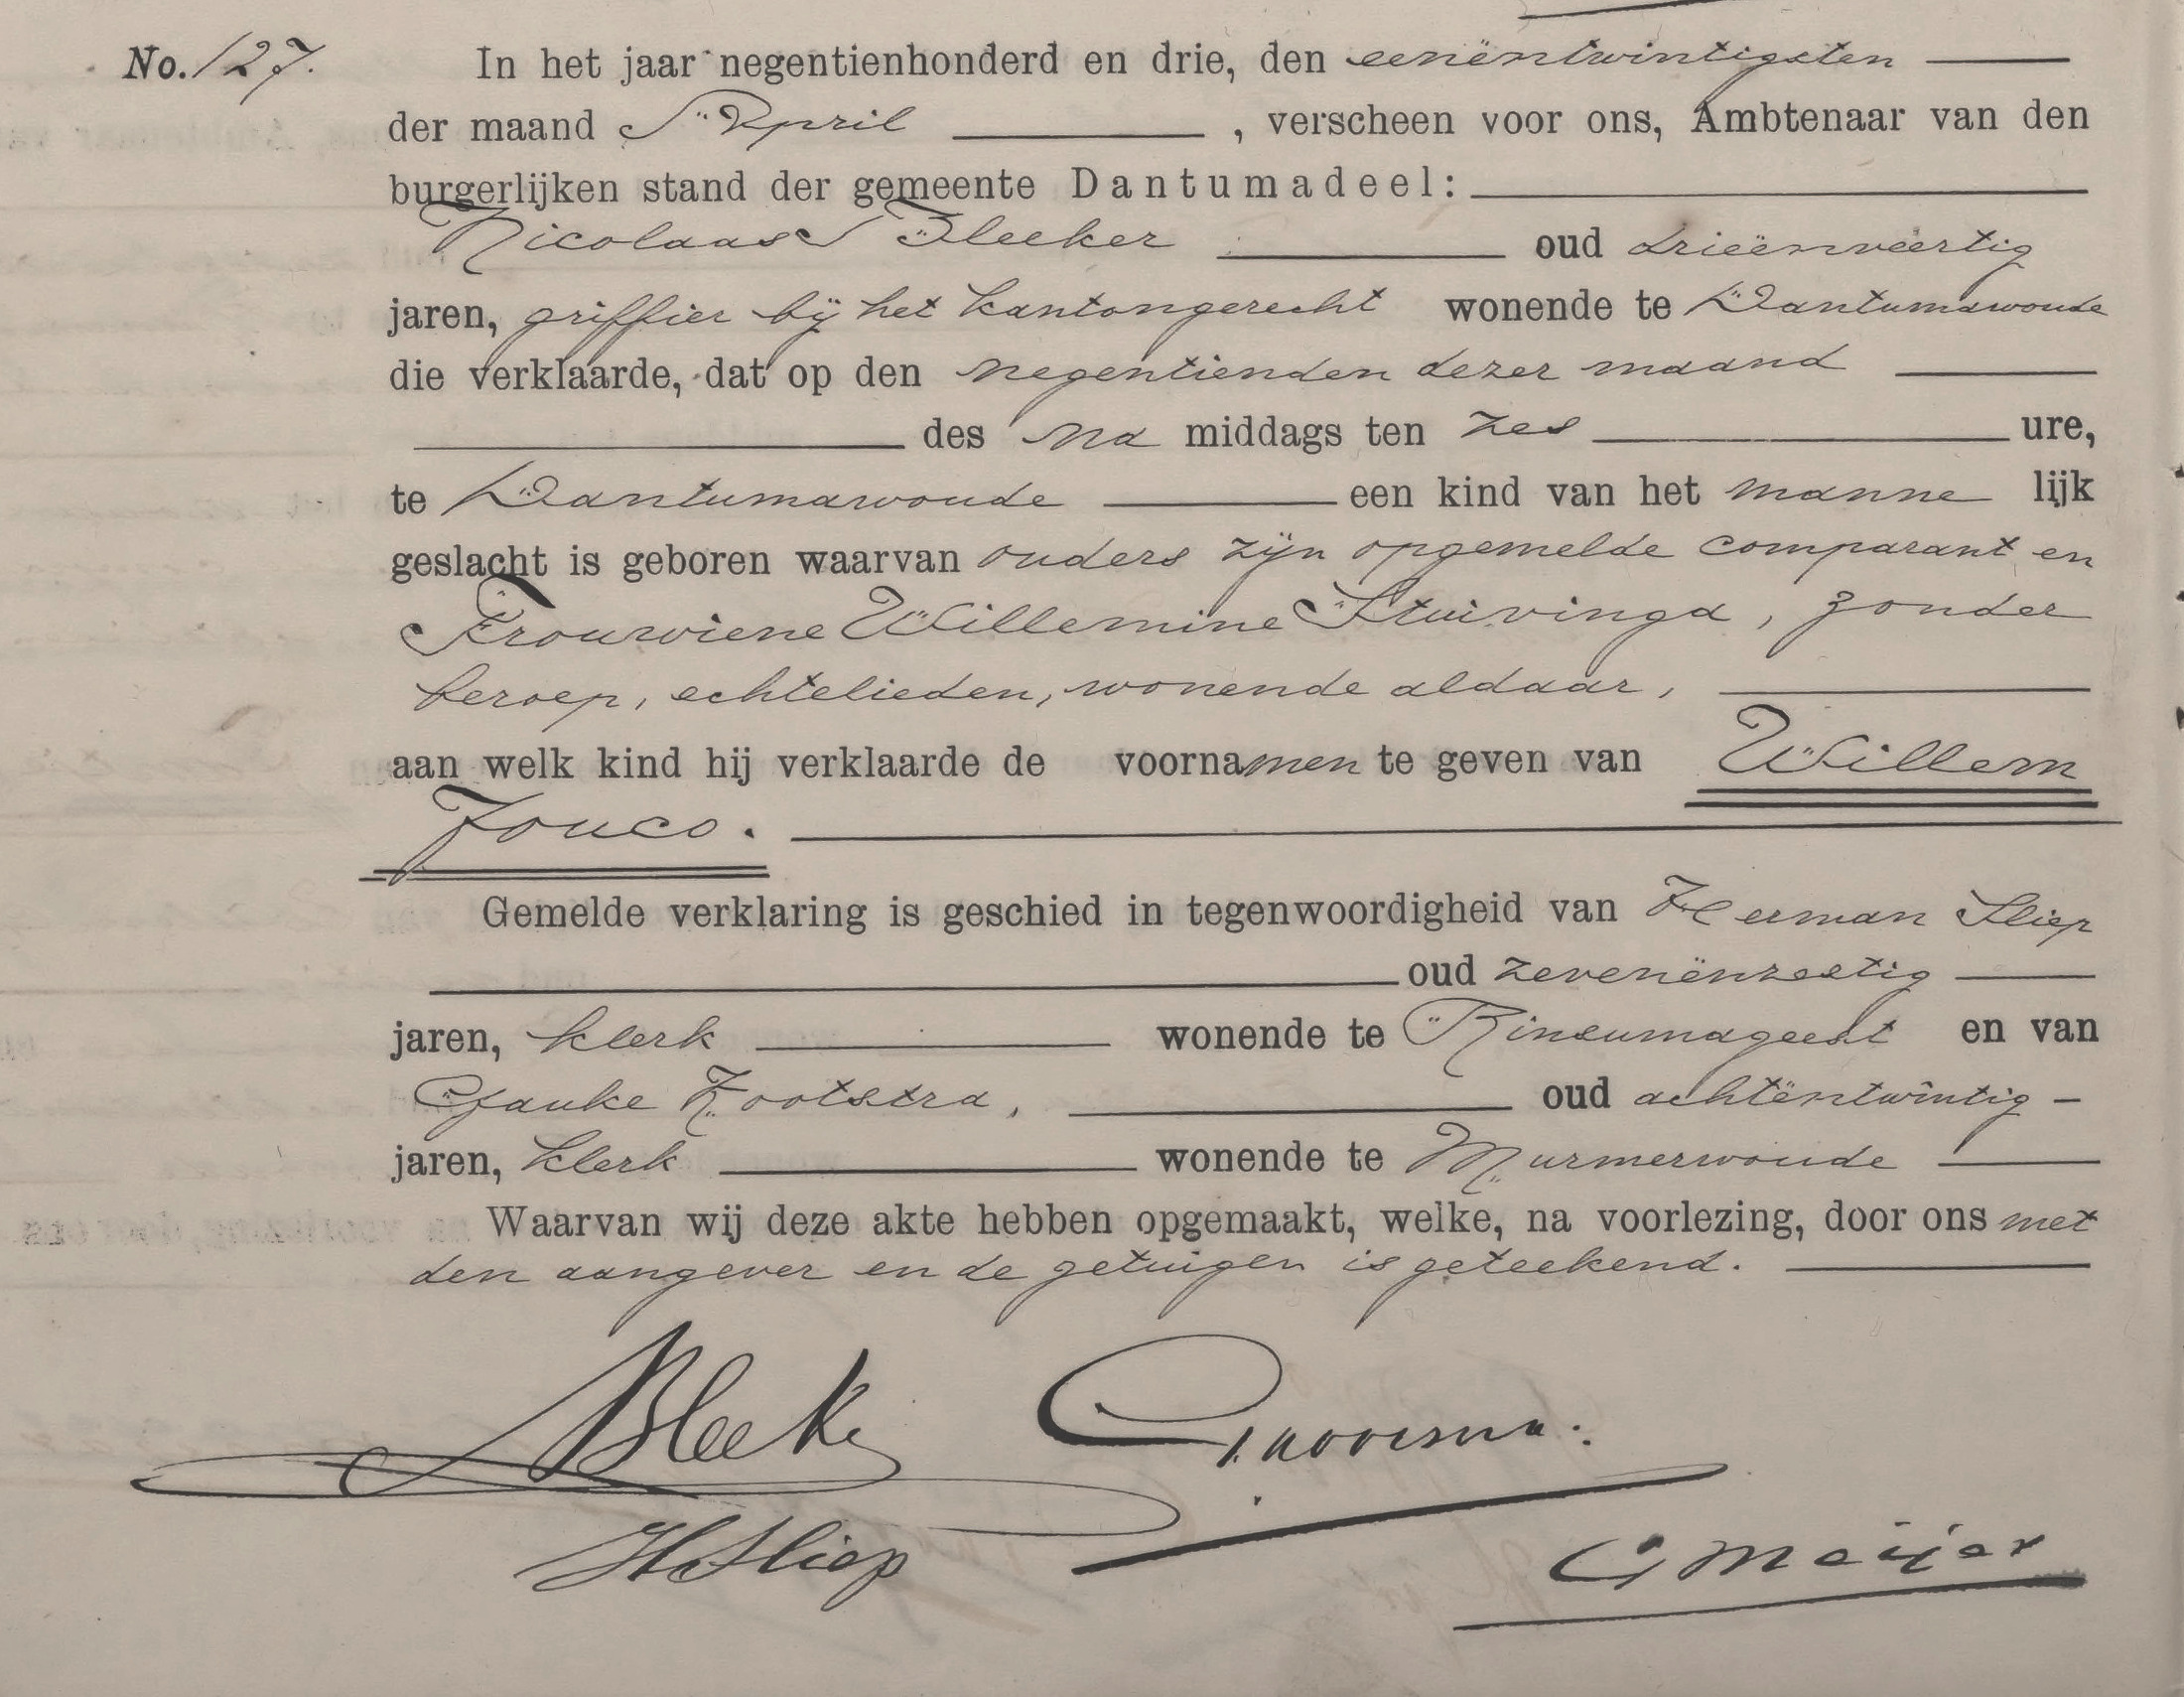 No. 127.
In het jaar negentienhonderd en drie, den eenëntwintigsten
der maand April, verscheen voor ons, Ambtenaar van den
burgerlijken stand der gemeente Dantumadeel:
Nicolaas Bleeker oud drieënveertig
jaren, griffier bij het kantongerecht wonende te Dantumawoude
die verklaarde, dat op den negentienden dezer maand
des na middags ten zes ure,
te Dantumawoude een kind van het manne lijk
geslacht is geboren waarvan ouders zijn opgemelde comparant en
Frouwiene Willemine Stuivinga, zonder
beroep, echtelieden, wonende aldaar,
aan welk kind hij verklaarde de voornamen te geven van Willem
Jouco.
Gemelde verklaring is geschied in tegenwoordigheid van Herman Sliep
oud zevenënzestig
jaren, klerk wonende te Rinsumageest en van
Zootstra, oud achtëntwintig
jaren, klerk wonende te Murmerwoude
Waarvan wij deze akte hebben opgemaakt, welke, na voorlezing, door ons met
den aangever en de getuigen is geteekend.
Bleeker
HSliep
C Meijer